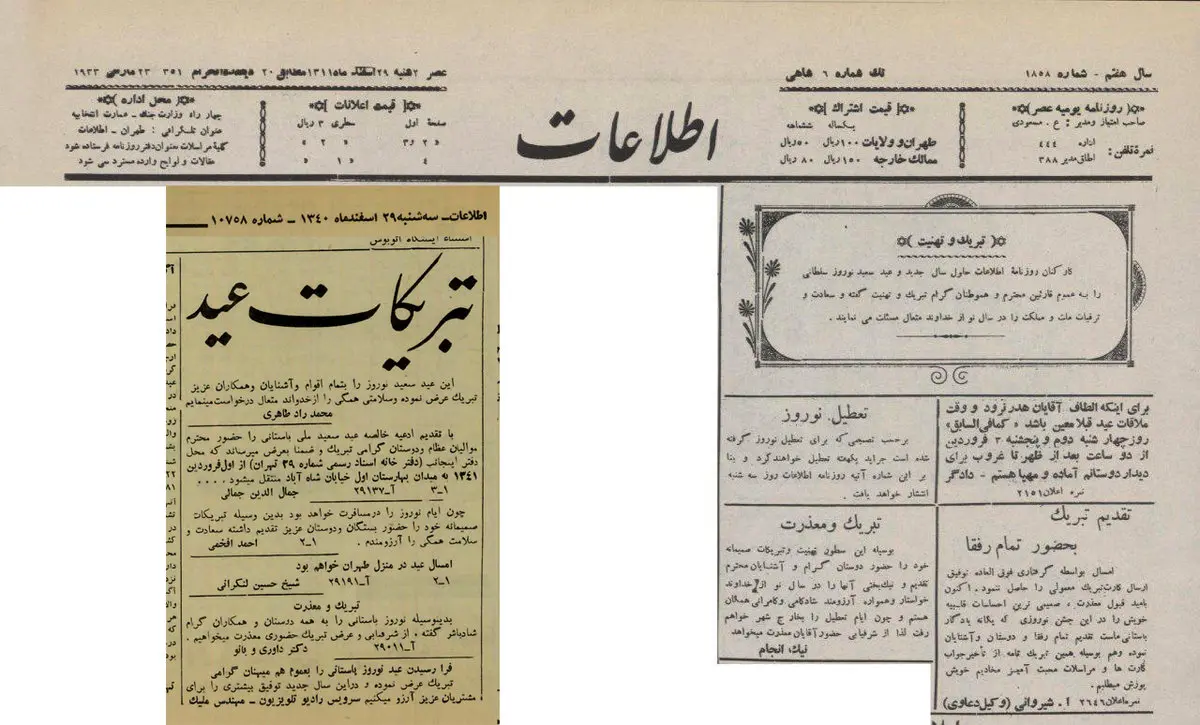 سال هفتم - شماره ۱۸۵۸
تك شماره ۶ شاهی
عصر ۲شنبه ۲۹ اسفند ماه ۱۳۱۱ مطابق ۲۰ ذیقعدةالحرام ۱۳۵۱ ۲۳ مارس ۱۹۳۳
روزنامه یومیه عصر
صاحب امتیاز ومدیر : ع . مسعودی
نمرة تلفن :
اداره ۴۴۴
اطاق مدیر ۳۸۸
قیمت اشتراك
یکساله ششماهه
طهران و ولایات ۱۰۰ ریال ۵۰ ریال
ممالك خارجه ۱۵۰ ریال ۸۰ ریال
اطلاعات
قیمت اعلانات
صفحهٔ اول سطری ۳ ریال
» ۲ و ۳ » ۲ »
» ۴ » ۱ »
محل اداره
چهار راه وزارت جنك - عمارت انتخابیه
عنوان تلگرافی : طهران - اطلاعات
کلیهٔ مراسلات بعنوان دفتر روزنامه فرستاده شود
مقالات و لوایح وارده مسترد نمی شود
تبریك و تهنیت
کارکنان روزنامهٔ اطلاعات حلول سال جدید و عید سعید نوروز سلطانی
را به عموم قارئین محترم و هموطنان گرام تبریك و تهنیت گفته و سعادت و
ترقیات ملت و مملکت را در سال نو از خداوند متعال مسئلت می نمایند .
برای اینکه الطاف آقایان هدر نرود و وقت
ملاقات عید قبلا معین باشد « کمافی السابق »
روز چهار شنبه دوم و پنجشنبه ۳ فروردین
از دو ساعت بعد از ظهر تا غروب برای
دیدار دوستانم آماده و مهیا هستم - دادگر
نمره اعلان ۲۱۵۱
تقدیم تبریك
بحضور تمام رفقا
امسال بواسطه گرفتاری فوق العاده توفیق
ارسال کارت تبریك معمولی را حاصل ننمود . اکنون
بامید قبول معذرت ، صمیمی ترین احساسات قلبیه
خویش را در این جشن نوروزی که یگانه یادگار
باستانی ماست تقدیم تمام رفقا و دوستان و آشنایان
نموده وهم بوسیله همین تبریك نامه از تأخیر جواب
کارت ها و مراسلات محبت آمیز مخادیم خویش
پوزش میطلبم .
نمره اعلان ۲۶۴۶ آ . شیروانی (وکیل دعاوی)
تعطیل نوروز
برحسب تصمیمی که برای تعطیل نوروز گرفته
شده است جراید یکهفته تعطیل خواهند کرد و بنا
بر این شماره آتیه روزنامه اطلاعات روز سه شنبه
انتشار خواهد یافت .
تبریك و معذرت
بوسیله این سطور تهنیت وتبریکات صمیمانه
خود را حضور دوستان گرام و آشنایان محترم
تقدیم و نیك بختی آنها را در سال نو از خداوند
خواستار وهمواره آرزومند شادکامی وکامرانی همگان
هستم و چون ایام تعطیل را بخارج شهر خواهم
رفت لذا از شرفیابی حضور آقایان معذرت میخواهد
نیك انجام
اطلاعات ـ سه شنبه ۲۹ اسفندماه ۱۳۴۰ ـ شماره ۱۰۷۵۸
ایستگاه اتوبوس
تبریکات عید
این عید سعید نوروز را بتمام اقوام وآشنایان وهمکاران عزیز
تبریك عرض نموده وسلامتی همگی را ازخدواند متعال درخواست مینمایم
محمد راد طاهری
با تقدیم ادعیه خالصه عید سعید ملی باستانی را حضور محترم
موالیان عظام ودوستان گرامی تبریك و ضمنا بعرض میرساند که محل
دفتر اینجانب (دفتر خانه اسناد رسمی شماره ۳۹ تهران) از اول فروردین
۱۳۴۱ به میدان بهارستان اول خیابان شاه آباد منتقل میشود . . . .
۱ـ۳ آـ۲۹۱۳۷ جمال الدین جمالی
چون ایام نوروز را درمسافرت خواهد بود بدین وسیله تبریکات
صمیمانه خود را حضور بستگان ودوستان عزیز تقدیم داشته سعادت و
سلامت همگی را آرزومندم . ۱ـ۲ احمد افخمی
امسال عید در منزل طهران خواهم بود
۱ـ۲ آـ۲۹۱۹۱ شیخ حسین لنکرانی
تبریك و معذرت
بدینوسیله نوروز باستانی را به همه دوستان و همکاران گرام
شادباش گفته ، از شرفیابی و عرض تبریك حضوری معذرت میخواهیم .
آـ۲۹۰۱۱ دکتر داوری و بانو
فرا رسیدن عید نوروز باستانی را بعموم هم میهنان گرامی
تبریك عرض نموده و دراین سال جدید توفیق بیشتری را برای
مشتریان عزیز آرزو میکنیم سرویس رادیو تلویزیون ـ مهندس ملیك